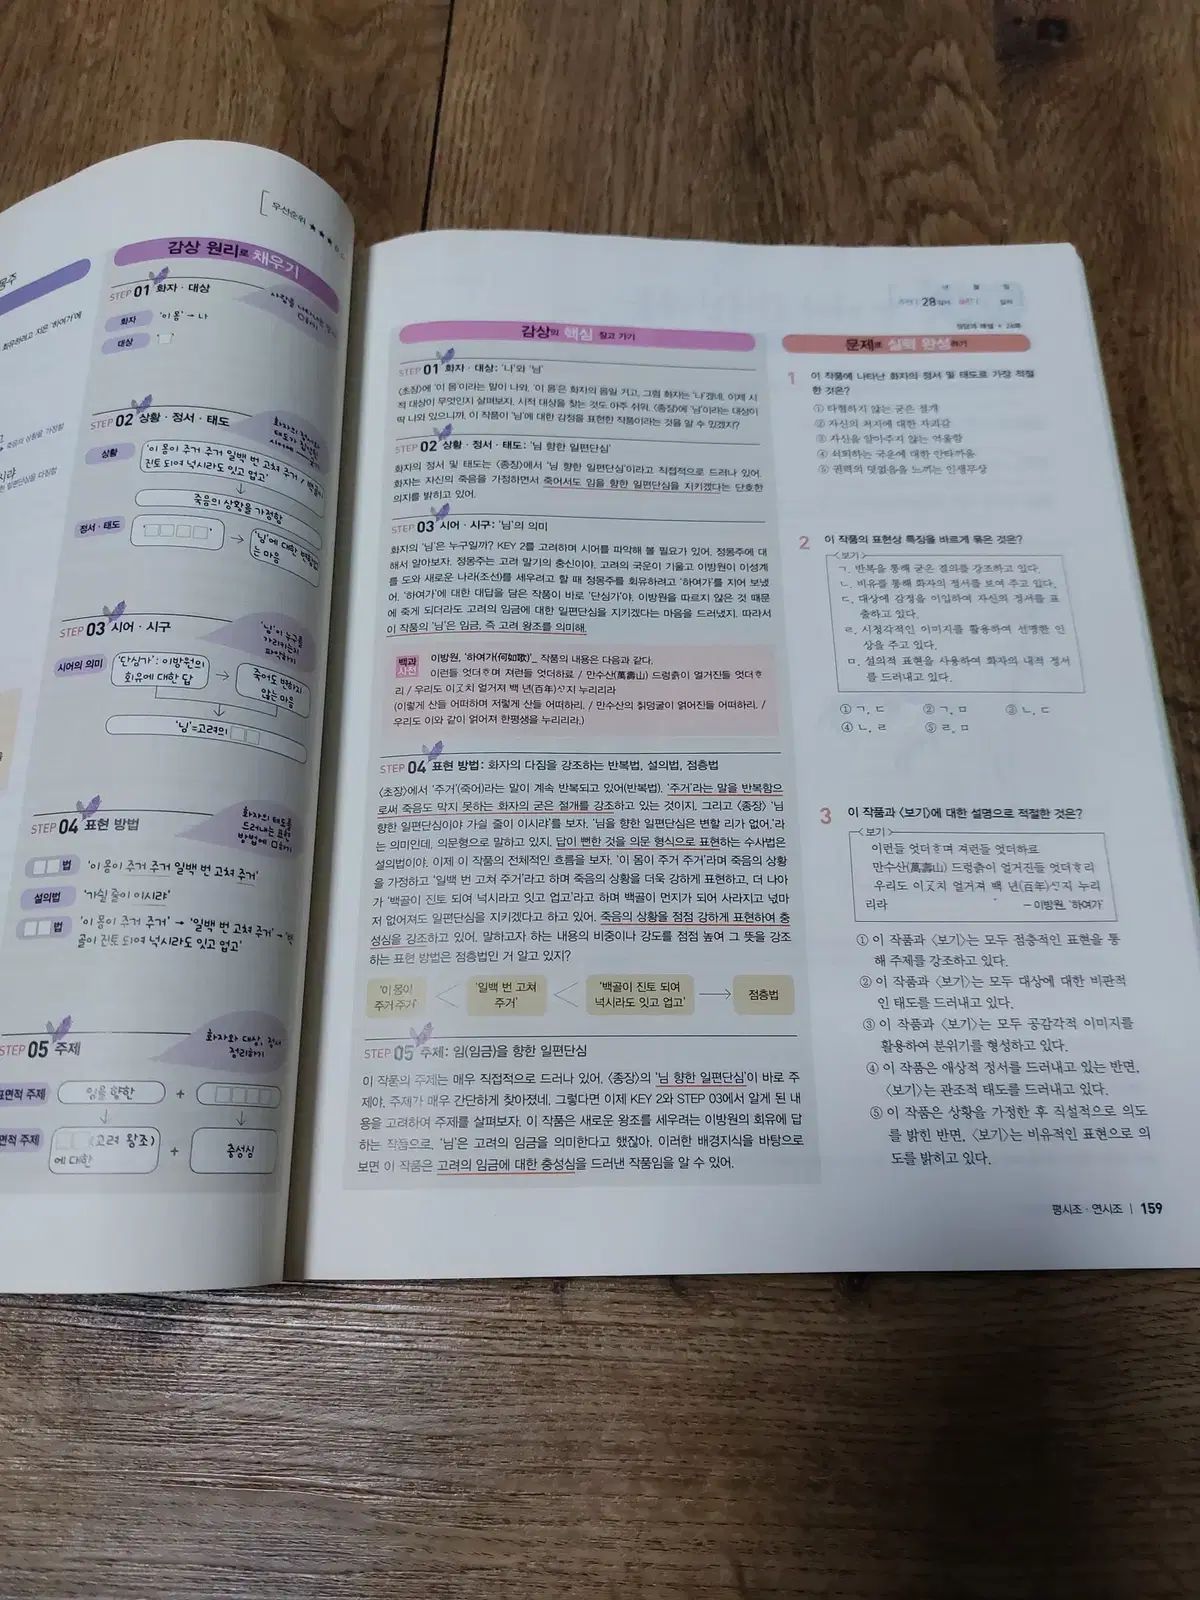 우선순위 ★★★
몽주
회유하려고 지은 '하여가'에
죽음의 상황을 가정함
일편단심을 다짐함
감상 원리로 채우기
STEP 01 화자 · 대상
화자 '이 몸' → 나
대상
STEP 02 상황 · 정서 · 태도
화자의 정서와
태도가 집약된
시어에
상황 '이 몸이 주거 주거 일백 번 고쳐 주거 / 백골이
진토 되여 넉시라도 잇고 업고'
죽음의 상황을 가정함
정서 · 태도
'님'에 대한 변함없
는 마음
STEP 03 시어 · 시구
'님'이 누구를
가리키는지
파악하기
시어의 의미 '단심가': 이방원의
회유에 대한 답
죽어도 변하지
않는 마음
'님'=고려의
STEP 04 표현 방법
화자의 태도를
드러내는 표현
방법에 ○하기
법 '이 몸이 주거 주거 일백 번 고쳐 주거'
설의법 '가실 줄이 이시랴'
법 '이 몸이 주거 주거' → '일백 번 고쳐 주거' → '백
골이 진토 되여 넉시라도 잇고 업고'
STEP 05 주제
화자와 대상, 정서
정리하기
표면적 주제 임을 향한 +
면적 주제 (고려 왕조)
에 대한 + 충성심
년 월 일
28
정답과 해설
감상의 핵심 짚고 가기
STEP 01 화자 · 대상: '나'와 '님'
〈초장〉에 '이 몸'이라는 말이 나와. '이 몸'은 화자의 몸일 거고, 그럼 화자는 '나'겠네. 이제 시
적 대상이 무엇인지 살펴보자. 시적 대상을 찾는 것도 아주 쉬워. 〈종장〉에 '님'이라는 대상이
딱 나와 있으니까. 이 작품이 '님'에 대한 감정을 표현한 작품이라는 것을 알 수 있겠지?
STEP 02 상황 · 정서 · 태도: '님 향한 일편단심'
화자의 정서 및 태도는 〈종장〉에서 '님 향한 일편단심'이라고 직접적으로 드러나 있어.
화자는 자신의 죽음을 가정하면서 죽어서도 임을 향한 일편단심을 지키겠다는 단호한
의지를 밝히고 있어.
STEP 03 시어 · 시구: '님'의 의미
화자의 '님'은 누구일까? KEY 2를 고려하며 시어를 파악해 볼 필요가 있어. 정몽주에 대
해서 알아보자. 정몽주는 고려 말기의 충신이야. 고려의 국운이 기울고 이방원이 이성계
를 도와 새로운 나라(조선)를 세우려고 할 때 정몽주를 회유하려고 '하여가'를 지어 보냈
어. '하여가'에 대한 대답을 담은 작품이 바로 '단심가'야. 이방원을 따르지 않은 것 때문
에 죽게 되더라도 고려의 임금에 대한 일편단심을 지키겠다는 마음을 드러냈지. 따라서
이 작품의 '님'은 임금, 즉 고려 왕조를 의미해.
백과
사전
이방원, '하여가(何如歌)'_ 작품의 내용은 다음과 같다.
이런들 엇더ᄒᆞ며 져런들 엇더하료 / 만수산(萬壽山) 드렁츩이 얼거진들 엇더ᄒᆞ
리 / 우리도 이ᄀᆞ치 얼거져 백 년(百年)ᄭᆞ지 누리리라
(이렇게 산들 어떠하며 저렇게 산들 어떠하리. / 만수산의 칡덩굴이 얽어진들 어떠하리. /
우리도 이와 같이 얽어져 한평생을 누리리라.)
STEP 04 표현 방법: 화자의 다짐을 강조하는 반복법, 설의법, 점층법
〈초장〉에서 '주거'(죽어)라는 말이 계속 반복되고 있어(반복법). '주거'라는 말을 반복함으
로써 죽음도 막지 못하는 화자의 굳은 절개를 강조하고 있는 것이지. 그리고 〈종장〉 '님
향한 일편단심이야 가실 줄이 이시랴'를 보자. '님을 향한 일편단심은 변할 리가 없어.'라
는 의미인데, 의문형으로 말하고 있지. 답이 뻔한 것을 의문 형식으로 표현하는 수사법은
설의법이야. 이제 이 작품의 전체적인 흐름을 보자. '이 몸이 주거 주거'라며 죽음의 상황
을 가정하고 '일백 번 고쳐 주거'라고 하며 죽음의 상황을 더욱 강하게 표현하고, 더 나아
가 '백골이 진토 되여 넉시라고 잇고 업고'라고 하며 백골이 먼지가 되어 사라지고 넋마
저 없어져도 일편단심을 지키겠다고 하고 있어. 죽음의 상황을 점점 강하게 표현하여 충
성심을 강조하고 있어. 말하고자 하는 내용의 비중이나 강도를 점점 높여 그 뜻을 강조
하는 표현 방법은 점층법인 거 알고 있지?
'이 몸이
주거 주거'
'일백 번 고쳐
주거'
'백골이 진토 되여
넉시라도 잇고 업고'
점층법
STEP 05 주제: 임(임금)을 향한 일편단심
이 작품의 주제는 매우 직접적으로 드러나 있어. 〈종장〉의 '님 향한 일편단심'이 바로 주
제야. 주제가 매우 간단하게 찾아졌네. 그렇다면 이제 KEY 2와 STEP 03에서 알게 된 내
용을 고려하여 주제를 살펴보자. 이 작품은 새로운 왕조를 세우려는 이방원의 회유에 답
하는 작품으로, '님'은 고려의 임금을 의미한다고 했잖아. 이러한 배경지식을 바탕으로
보면 이 작품은 고려의 임금에 대한 충성심을 드러낸 작품임을 알 수 있어.
문제로 실력 완성하기
1 이 작품에 나타난 화자의 정서 및 태도로 가장 적절
한 것은?
① 타협하지 않는 굳은 절개
② 자신의 처지에 대한 자괴감
③ 자신을 알아주지 않는 억울함
④ 쇠퇴하는 국운에 대한 안타까움
⑤ 권력의 덧없음을 느끼는 인생무상
2 이 작품의 표현상 특징을 바르게 묶은 것은?
〈보기〉
ㄱ. 반복을 통해 굳은 결의를 강조하고 있다.
ㄴ. 비유를 통해 화자의 정서를 보여 주고 있다.
ㄷ. 대상에 감정을 이입하여 자신의 정서를 표
출하고 있다.
ㄹ. 시청각적인 이미지를 활용하여 선명한 인
상을 주고 있다.
ㅁ. 설의적 표현을 사용하여 화자의 내적 정서
를 드러내고 있다.
① ㄱ, ㄷ ② ㄱ, ㅁ ③ ㄴ, ㄷ
④ ㄴ, ㄹ ⑤ ㄹ, ㅁ
3 이 작품과 〈보기〉에 대한 설명으로 적절한 것은?
〈보기〉
이런들 엇더ᄒᆞ며 져런들 엇더하료
만수산(萬壽山) 드렁츩이 얼거진들 엇더ᄒᆞ리
우리도 이ᄀᆞ치 얼거져 백 년(百年)ᄭᆞ지 누리
리라 – 이방원, '하여가'
① 이 작품과 〈보기〉는 모두 점층적인 표현을 통
해 주제를 강조하고 있다.
② 이 작품과 〈보기〉는 모두 대상에 대한 비판적
인 태도를 드러내고 있다.
③ 이 작품과 〈보기〉는 모두 공감각적 이미지를
활용하여 분위기를 형성하고 있다.
④ 이 작품은 애상적 정서를 드러내고 있는 반면,
〈보기〉는 관조적 태도를 드러내고 있다.
⑤ 이 작품은 상황을 가정한 후 직설적으로 의도
를 밝힌 반면, 〈보기〉는 비유적인 표현으로 의
도를 밝히고 있다.
평시조 · 연시조 | 159